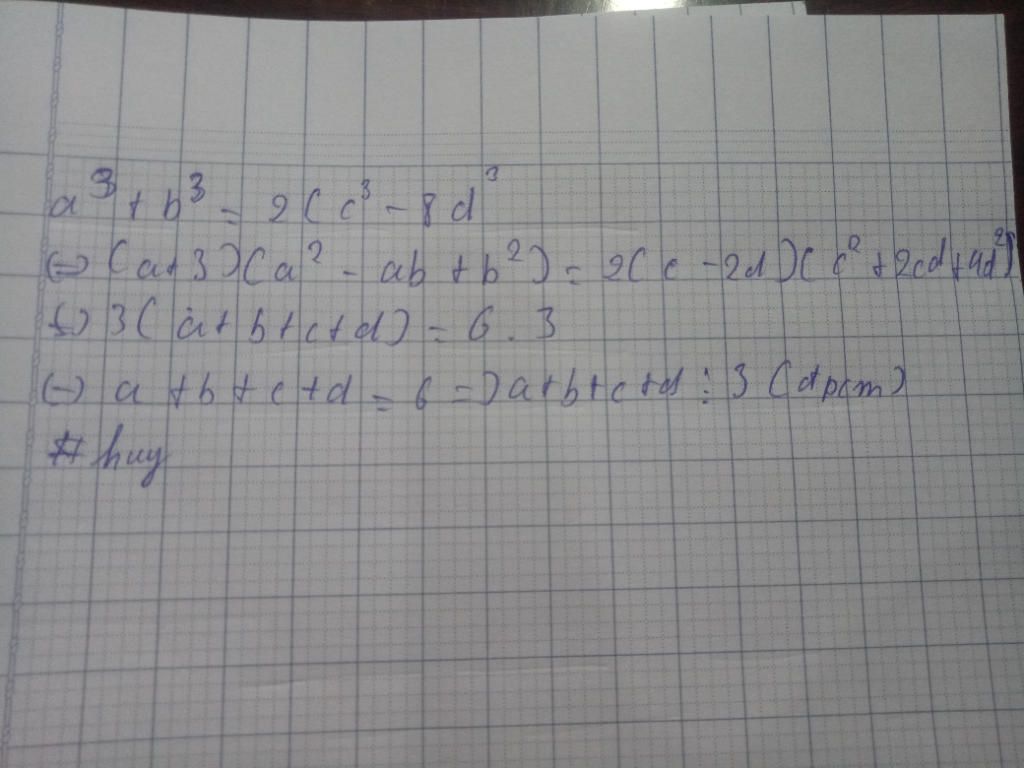 a³ + b³ = 2(c³ - 8d³
(=) (a+3)(a² - ab + b²) = 2(c - 2d)(c² + 2cd + 4d²)
(=) 3(a + b + c + d) = 6 . 3
(=) a + b + c + d = 6 =) a + b + c + d ⋮ 3 (đpcm)
# huy